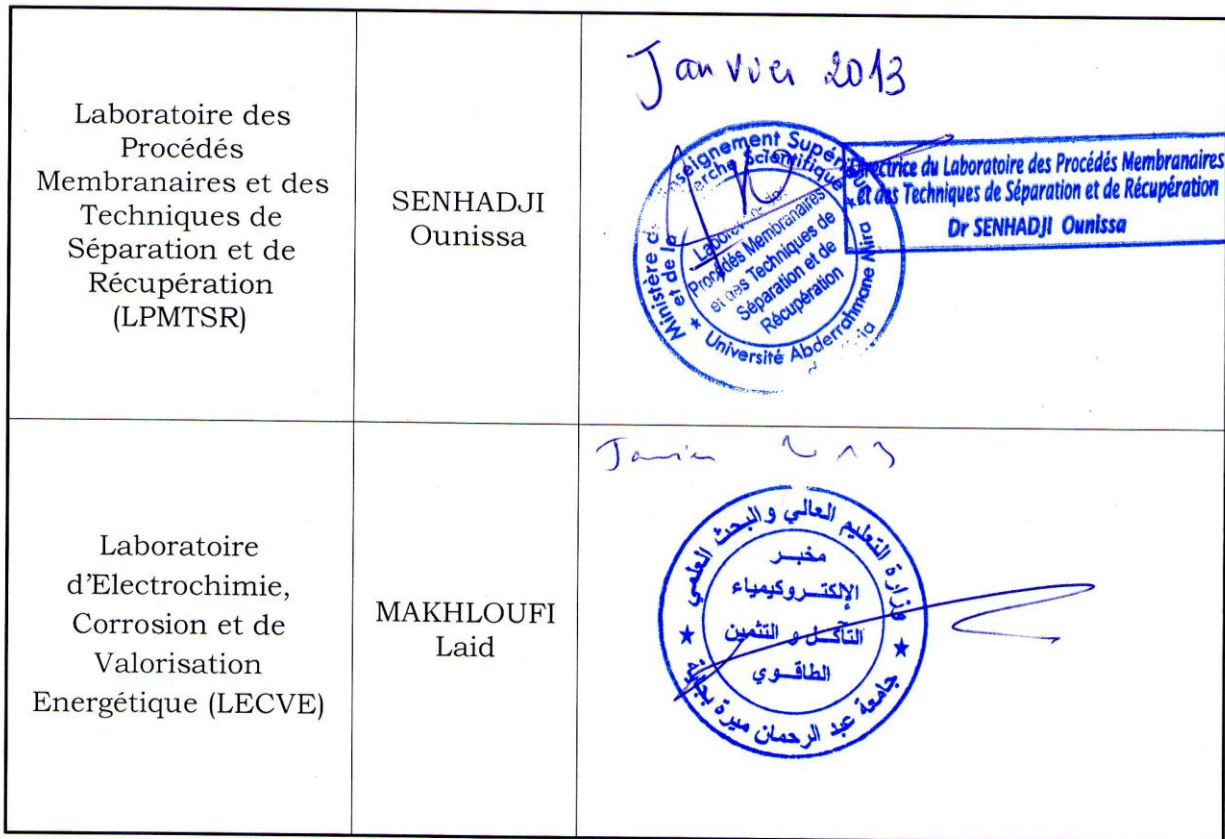 Laboratoire des
Procédés
Membranaires et des
Techniques de
Séparation et de
Récupération
(LPMTSR)
SENHADJI
Ounissa
Janvier 2013
Enseignement Supérieur
et de la Recherche Scientifique
Ministère
Laboratoire des
Procédés Membranaires
et des Techniques de
Séparation et de
Récupération
★ Université Abderrahmane Mira
Directrice du Laboratoire des Procédés Membranaires
et des Techniques de Séparation et de Récupération
Dr SENHADJI Ounissa
Laboratoire
d'Electrochimie,
Corrosion et de
Valorisation
Energétique (LECVE)
MAKHLOUFI
Laid
Janvier 2013
وزارة التعليم العالي والبحث العلمي
مخبر
الإلكتروكيمياء
التآكل و التثمين
الطاقوي
★ جامعة عبد الرحمان ميرة بجاية ★